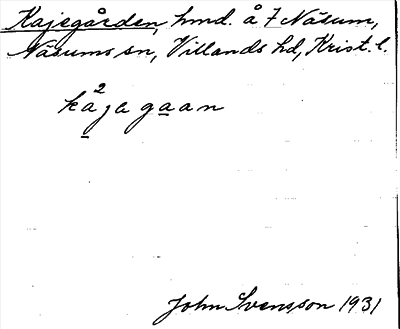 Kajegården, hmd. å 7 Näsum,
Näsums sn, Villands hd, Krist. l.
ka²ja gaan
John Svensson 1931